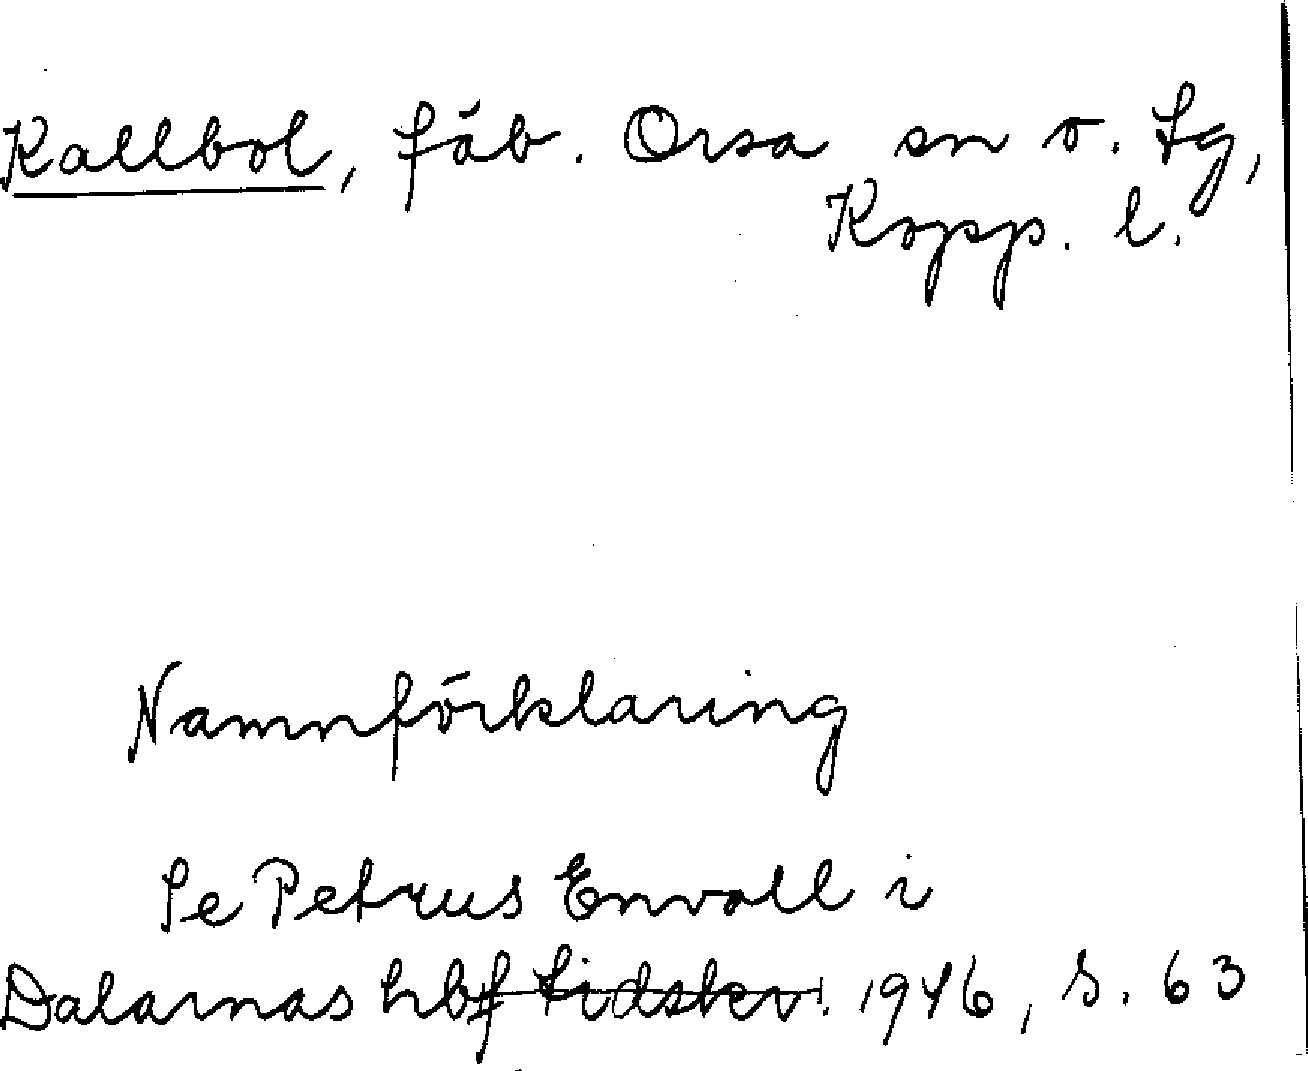 Kallbol, fäb. Orsa sn o. tg,
Kopp. l.
Namnförklaring
Se Petrus Envall i
Dalarnas hbf tidskr. 1946, s. 63